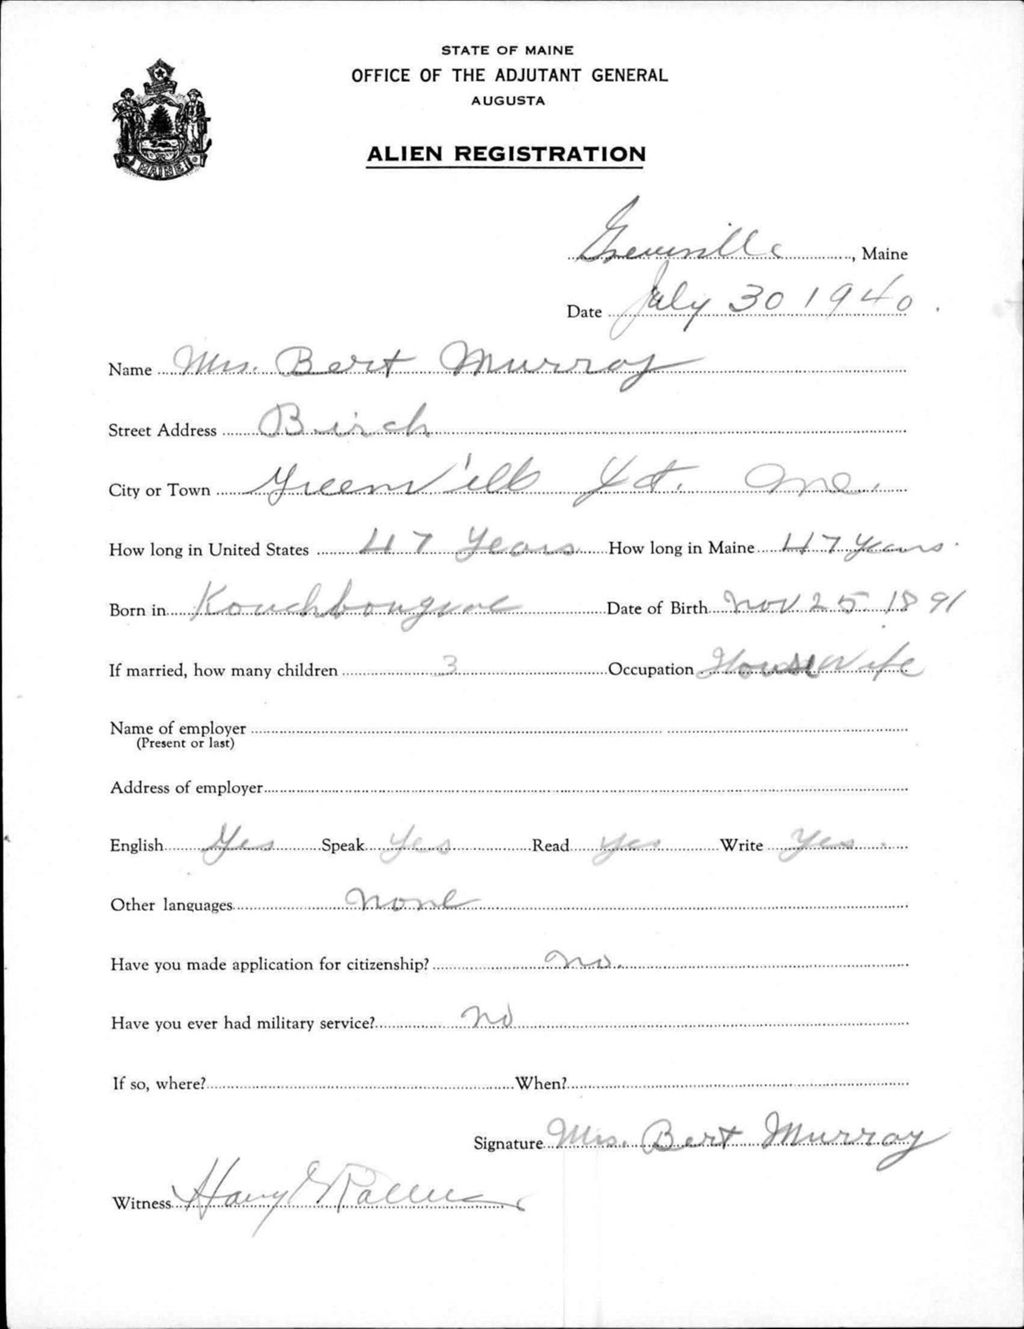 STATE OF MAINE
OFFICE OF THE ADJUTANT GENERAL
AUGUSTA
ALIEN REGISTRATION
MAINE
Greenville, Maine
Date July 30 1940.
Name Mrs. Bert Murray
Street Address Birch
City or Town Greenville Jct. Me.
How long in United States 47 Years How long in Maine 47 Years.
Born in Kouchbouguac Date of Birth Nov 25 1891
If married, how many children 3 Occupation House Wife
Name of employer
(Present or last)
Address of employer
English Yes Speak Yes Read Yes Write Yes
Other languages None
Have you made application for citizenship? No.
Have you ever had military service? No
If so, where? When?
Signature Mrs. Bert Murray
Witness Harry